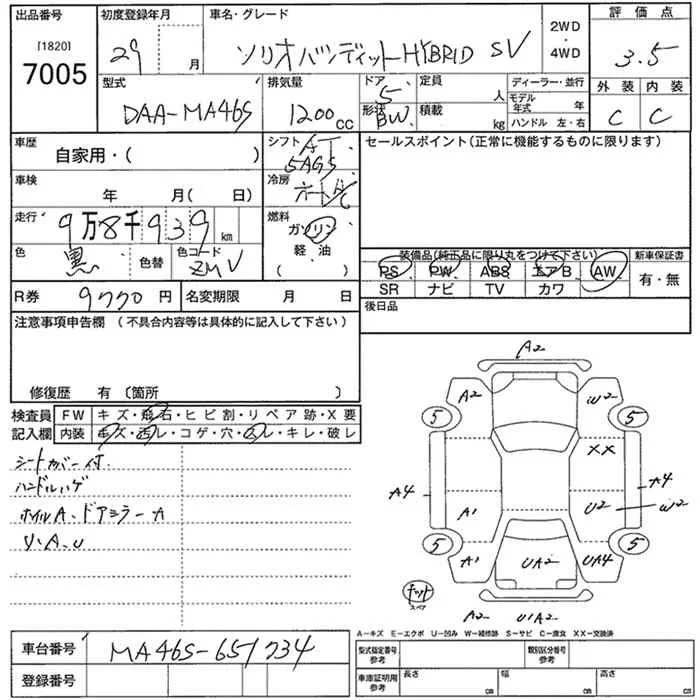 出品番号
[1820]
7005
初度登録年月
29 月
車名・グレード
ソリオバンディットHYBRID SV
2WD
4WD
評価点
3.5
型式
DAA-MA46S
排気量
1200cc
ドア
5
形状
BW
定員
人
積載
kg
ディーラー・並行
モデル年式 年
ハンドル 左・右
外装
C
内装
C
車歴
自家用・( )
シフト
AT
5AGS
セールスポイント(正常に機能するものに限ります)
車検
年 月( 日)
冷房
オートA/C
走行
9万8千939km
燃料
ガソリン
軽油
( )
色
黒
色替
色コード
ZMV
装備品(純正品に限り丸をつけて下さい)
PS PW ABS エアB AW
SR ナビ TV カワ
新車保証書
有・無
R券
9770円
名変期限 月 日
後日品
注意事項申告欄(不具合内容等は具体的に記入して下さい)
修復歴 有(箇所 )
検査員
記入欄
FW キズ・飛石・ヒビ割・リペア跡・X要
内装 キズ・汚レ・コゲ・穴・凹レ・キレ・破レ
シートカバー付
ハンドルハゲ
ホイルA、ドアミラーA
リ、A、U
A2
A2
W2
5
5
XX
A4
A4
A1
U2
W2
5
5
A1
UA2
UA4
スペア
A2
U1A2
A-キズ E-エクボ U-凹み W-補修跡 S-サビ C-腐食 XX-交換済
車台番号
MA46S-651734
登録番号
型式指定番号
参考
類別区分番号
参考
車庫証明用
参考
長さ cm
幅 cm
高さ cm